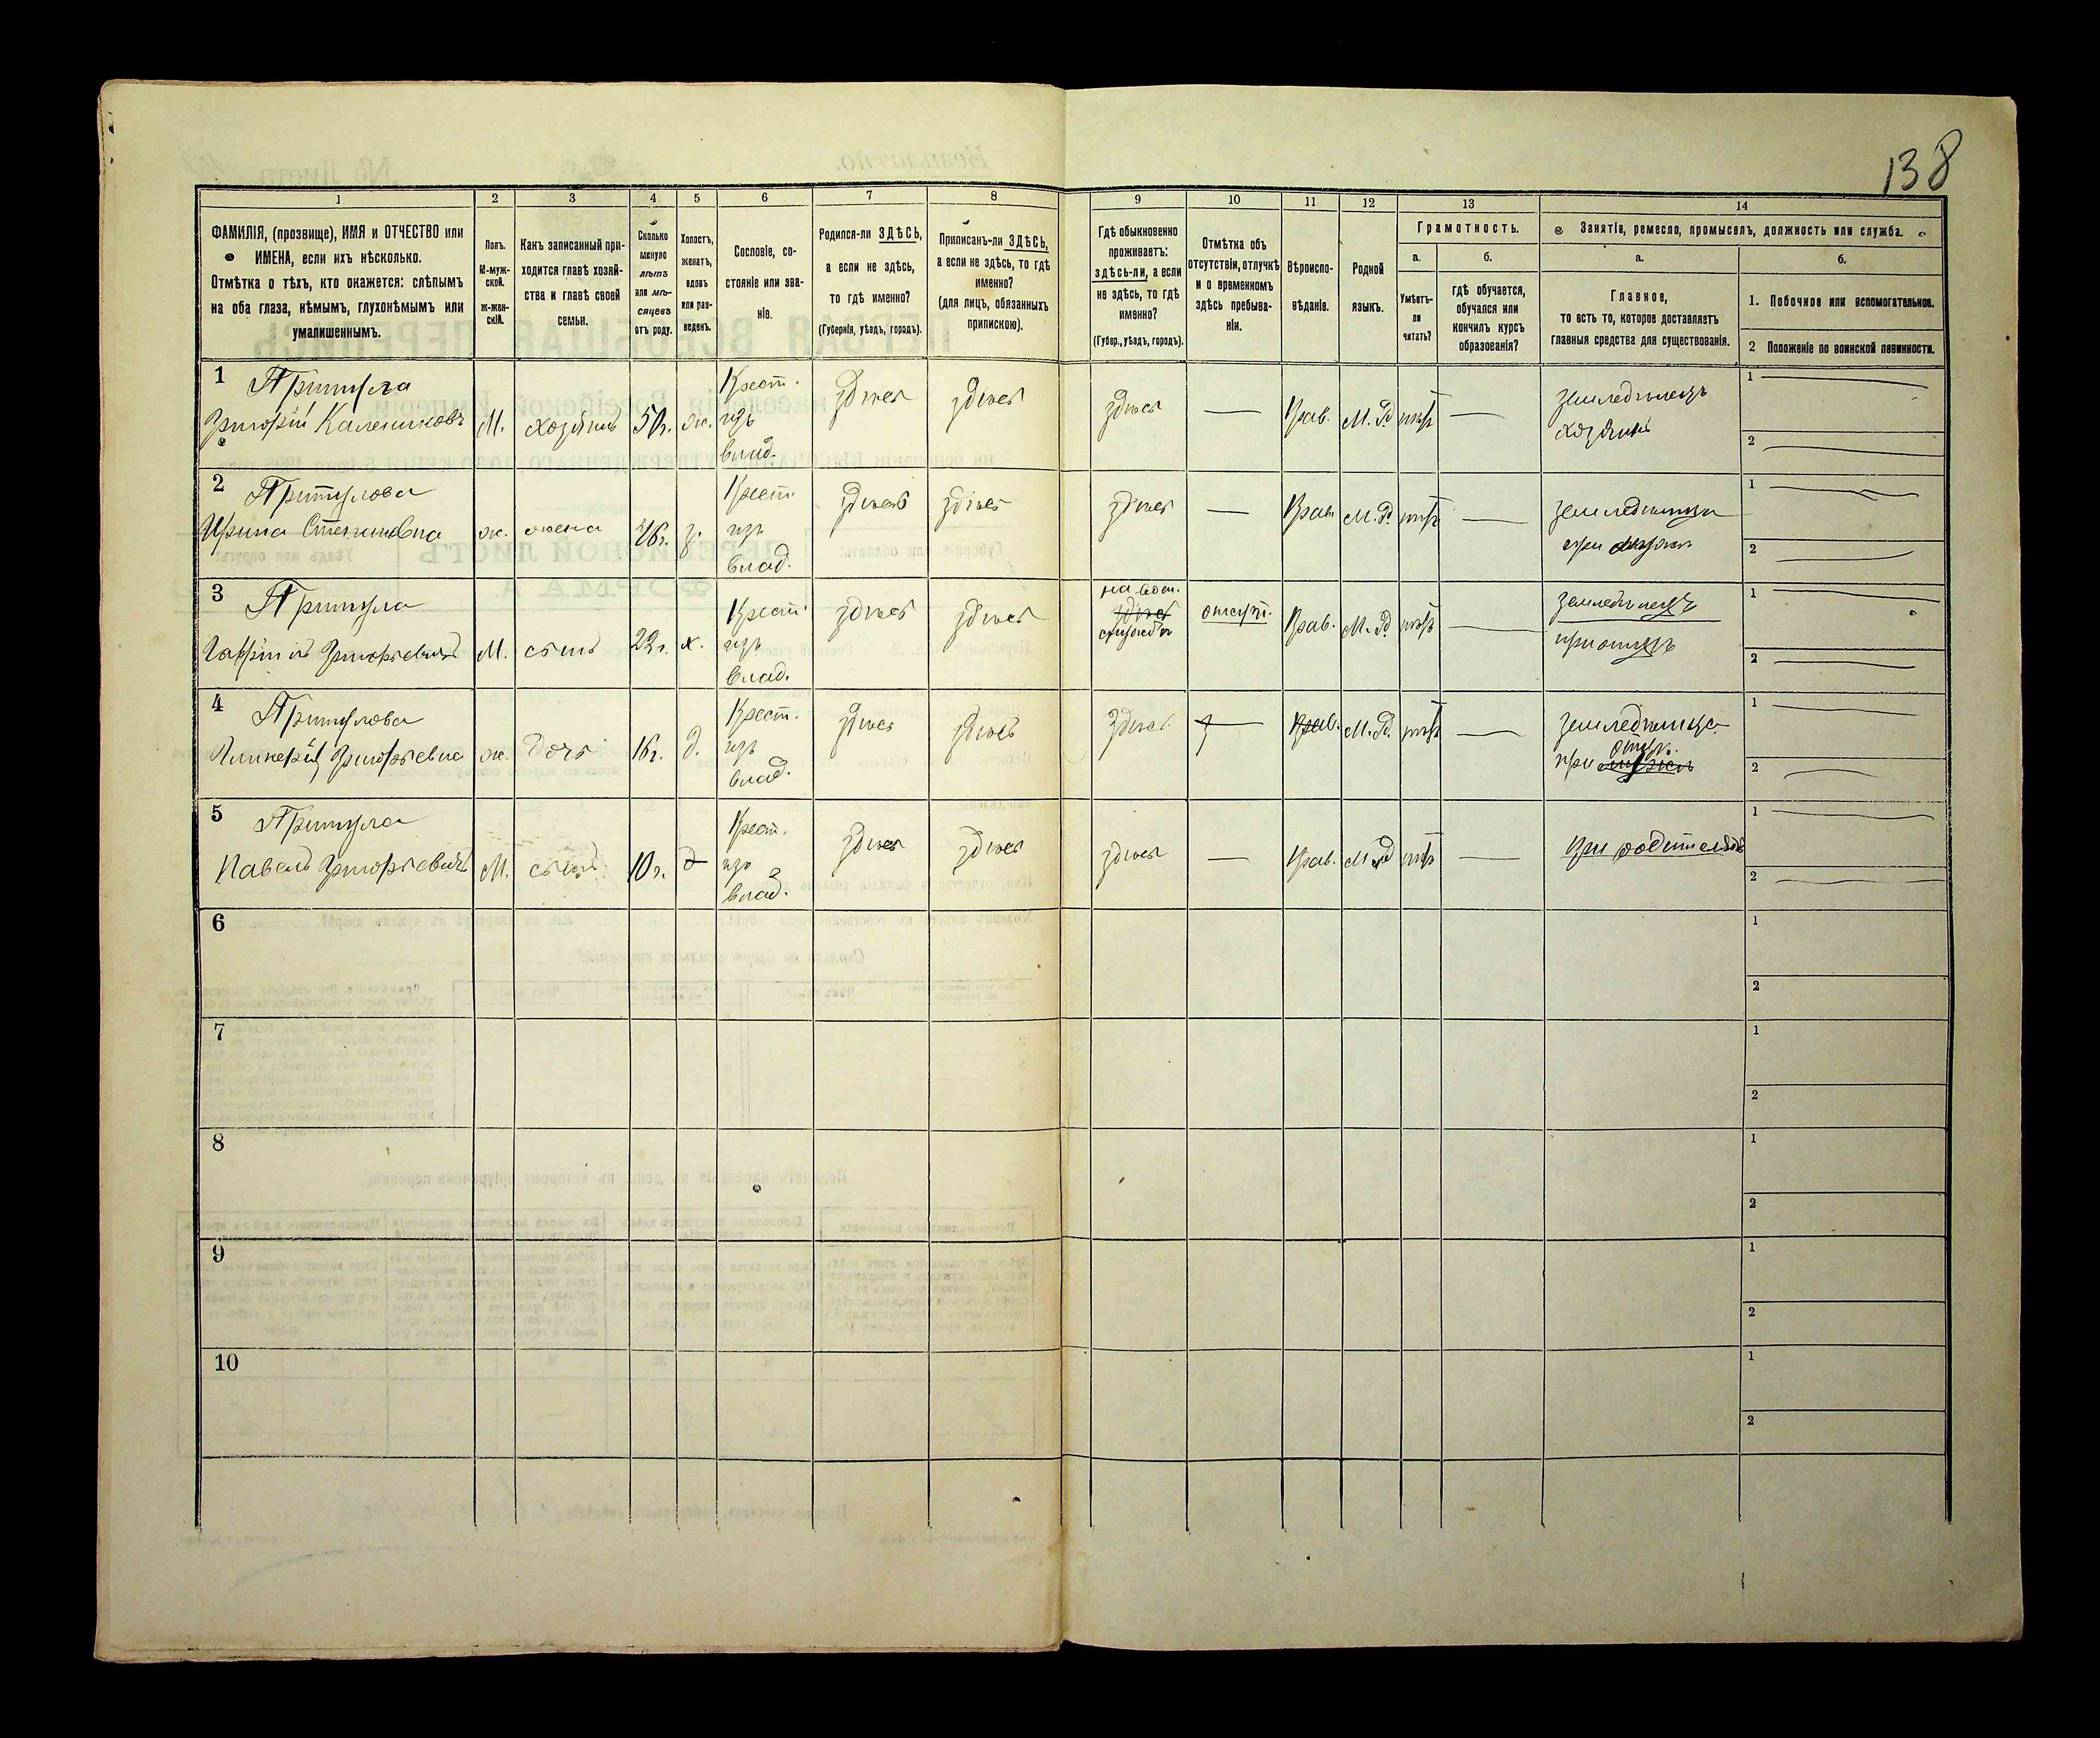 138
1 2 3 4 5 6 7 8 9 10 11 12 13 14
ФАМИЛІЯ, (прозвище), ИМЯ и ОТЧЕСТВО или
ИМЕНА, если ихъ нѣсколько.
Отмѣтка о тѣхъ, кто окажется: слѣпымъ
на оба глаза, нѣмымъ, глухонѣмымъ или
умалишеннымъ.
Полъ.
М-муж-
ской.
Ж-жен-
скій.
Какъ записанный при-
ходится главѣ хозяй-
ства и главѣ своей
семьи.
Сколько
минуло
лѣтъ
или мѣ-
сяцевъ
отъ роду.
Холостъ,
женатъ,
вдовъ
или раз-
веденъ.
Сословіе, со-
стояніе или зва-
ніе.
Родился-ли ЗДѢСЬ,
а если не здѣсь,
то гдѣ именно?
(Губернія, уѣздъ, городъ).
Приписанъ-ли ЗДѢСЬ,
а если не здѣсь, то гдѣ
именно?
(для лицъ, обязанныхъ
припискою).
Гдѣ обыкновенно
проживаетъ:
здѣсь-ли, а если
не здѣсь, то гдѣ
именно?
(Губер., уѣздъ, городъ).
Отмѣтка объ
отсутствіи, отлучкѣ
и о временномъ
здѣсь пребыва-
ніи.
Вѣроиспо-
вѣданіе.
Родной
языкъ.
Грамотность.
а.
Умѣетъ-
ли
читать?
б.
гдѣ обучается,
обучался или
кончилъ курсъ
образованія?
Занятіе, ремесло, промыселъ, должность или служба.
а.
Главное,
то есть то, которое доставляетъ
главныя средства для существованія.
б.
1. Побочное или вспомогательное.
2 Положеніе по воинской повинности.
1 Притула Крест. здѣсь здѣсь здѣсь — Прав. М. Р. нѣтъ — земледѣлецъ 1
Григорій Калениковъ М. хозяинъ 50 г. ж. изъ хозяинъ
влад. 2
2 Притулова Крест. здѣсь здѣсь здѣсь — Прав. М. Р. нѣтъ — земледѣлица 1
Ирина Степановна ж. жена 46 г. з. изъ при мужѣ
влад. 2
3 Притула Крест. здѣсь здѣсь здѣсь отсут. Прав. М. Р. нѣтъ — земледѣлецъ 1
Григорьевичъ М. сынъ 22 г. х. изъ службѣ при отцѣ
влад. 2
4 Притулова Крест. здѣсь здѣсь здѣсь — Прав. М. Р. нѣтъ — земледѣлица 1
Григорьевна ж. дочь 16 г. д. изъ при мужѣ отцѣ
влад. 2
5 Притула Крест. здѣсь здѣсь здѣсь — Прав. М. Р. нѣтъ — при родителяхъ 1
Павелъ Григорьевичъ М. сынъ 10 г. изъ
влад. 2
6 1
2
7 1
2
8 1
2
9 1
2
10 1
2